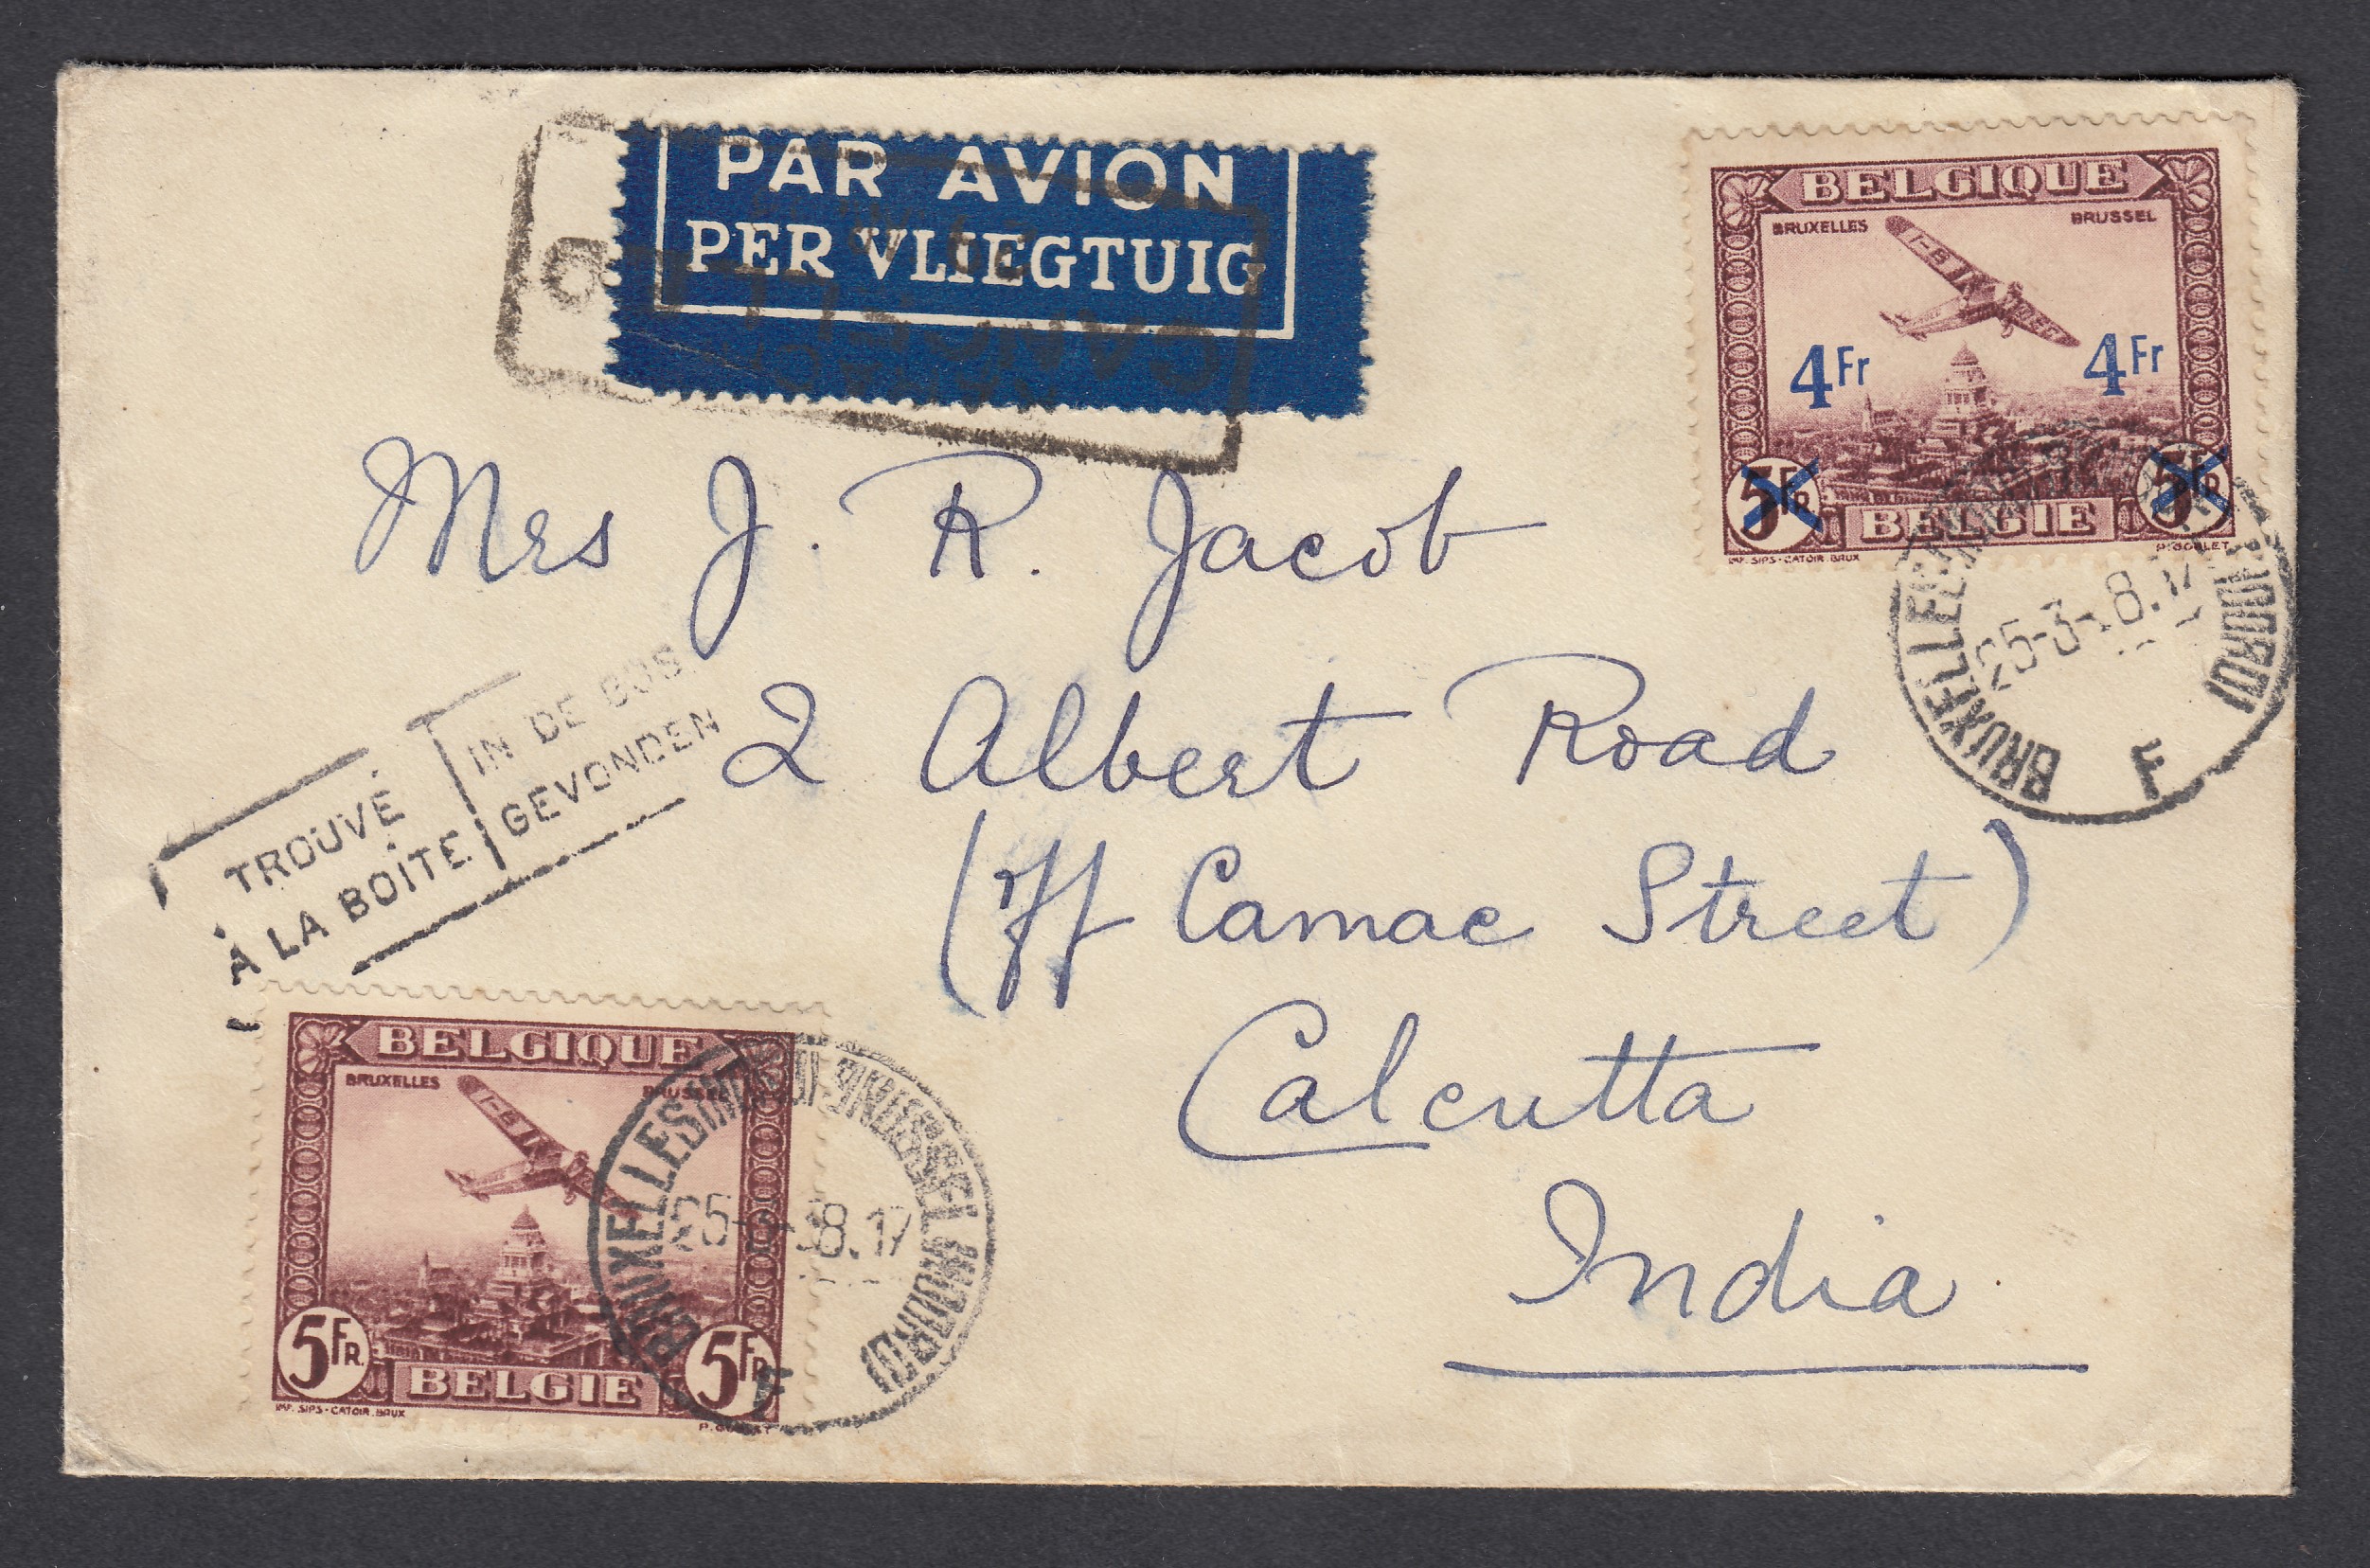 PAR AVION
PER VLIEGTUIG
BELGIQUE
BRUXELLES BRUSSEL
4Fr 4Fr
5FR. 5FR.
BELGIE
IMP. SIPS-CATOIR.BRUX P. GOBLET
BRUXELLES
25-3- 8.17
F
Mrs J. R. Jacob
2 Albert Road
Camac Street)
Calcutta
India
TROUVÉ
À LA BOÎTE
IN DE BUS
GEVONDEN
BELGIQUE
BRUXELLES BRUSSEL
5FR. 5FR.
BELGIE
IMP. SIPS-CATOIR.BRUX P. GOBLET
BRUXELLES BRUSSEL
25- 38.17
F